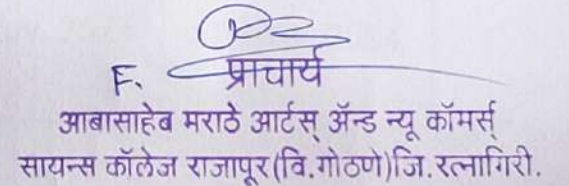 F. प्राचार्य
आबासाहेब मराठे आर्टस् ॲन्ड न्यू कॉमर्स्
सायन्स कॉलेज राजापूर(वि.गोठणे)जि.रत्नागिरी.